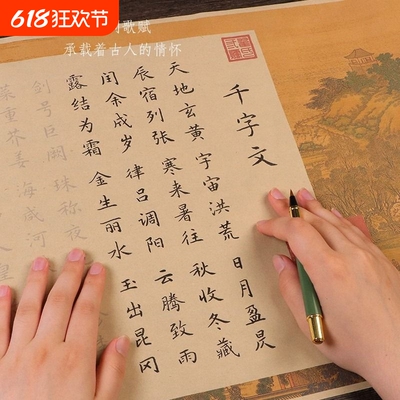 618狂欢节
的歌赋
承载着古人的情怀
千字文
天地玄黄 宇宙洪荒 日月盈昃
辰宿列张 寒来暑往 秋收冬藏
闰余成岁 律吕调阳 云腾致雨
露结为霜 金生丽水 玉出昆冈
剑号巨阙 珠称夜
菜重芥姜 海咸河
人皇